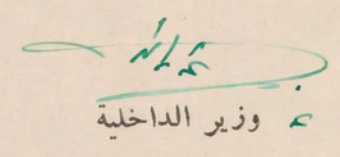 ع وزير الداخلية